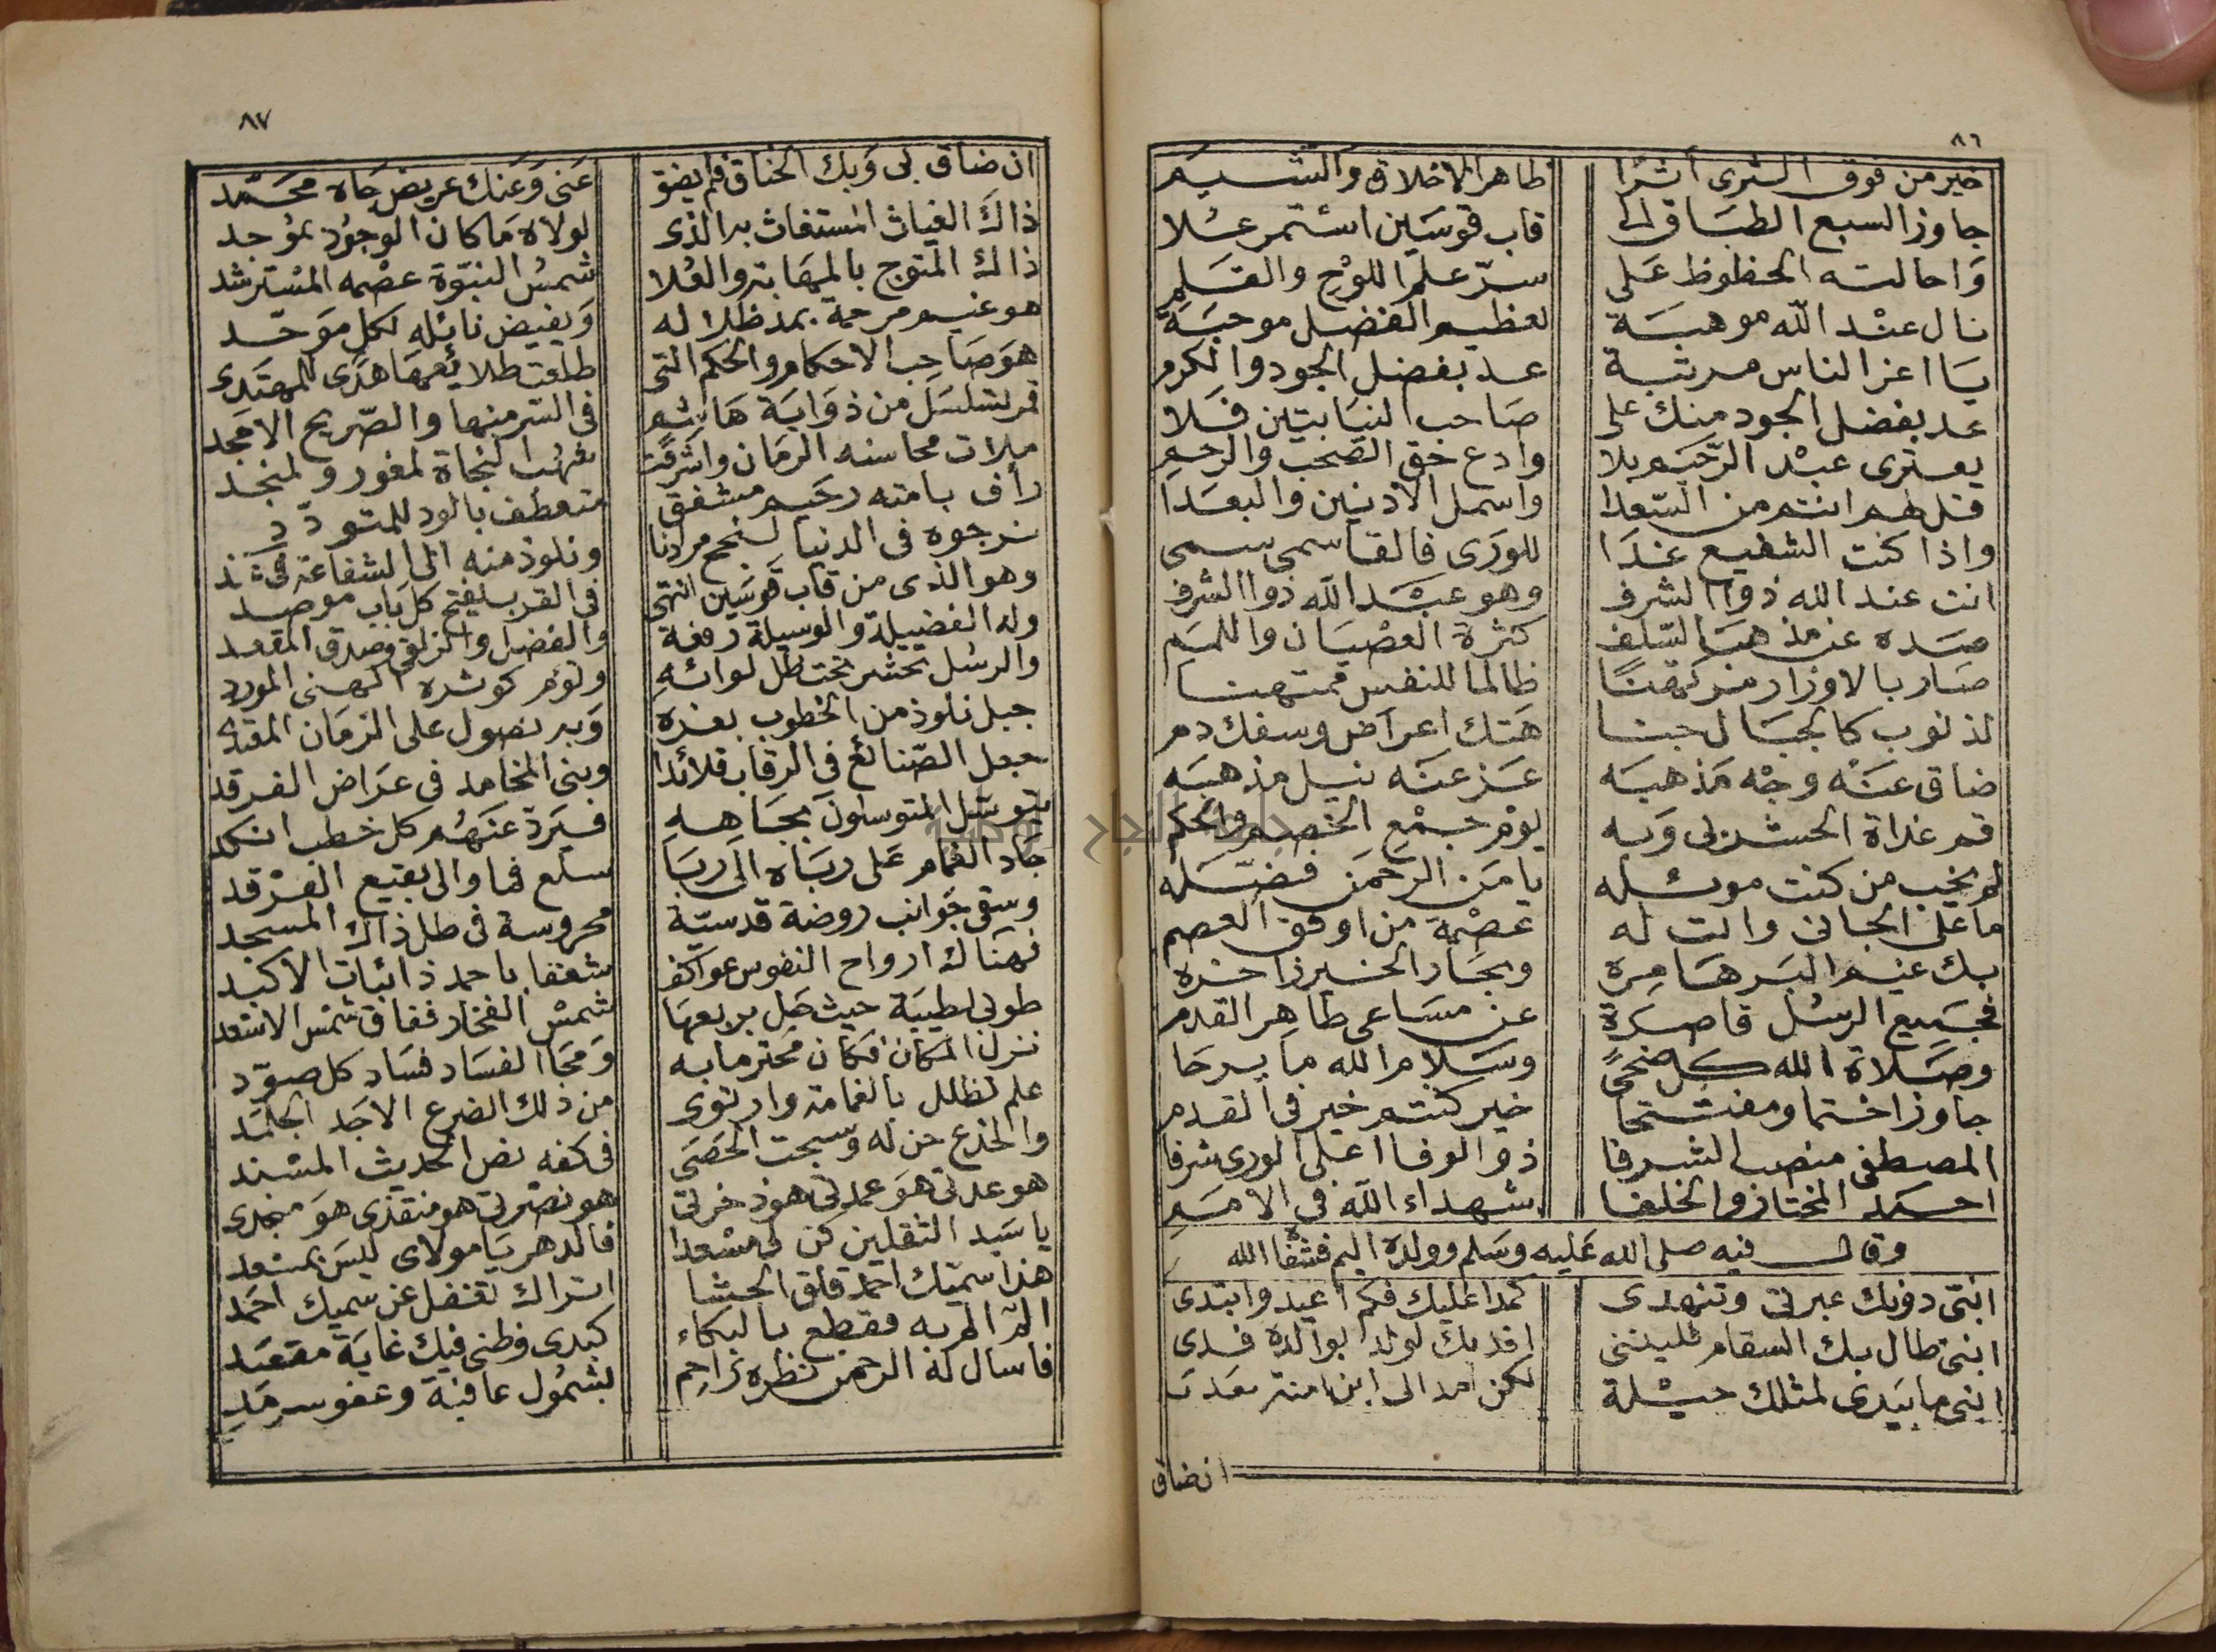 ٨٦
خير من فوق الثرى اثرا طاهر الاخلاق والشيم
جاوز السبع الطباق الى قاب قوسين استمر علا
واحالته الحظوظ على سر علم اللوح والقلم
نال عند الله موهبة لعظيم الفضل موجبة
يا اعز الناس مرتبة عد بفضل الجود والكرم
عد بفضل الجود منك على صاحب النيابتين فلا
يعترى عبد الرحيم بلا وادع حق الصحب والرحم
قل لهم انتم من السعدا واسمل الادنين والبعدا
واذا كنت الشفيع غدا للورى فالقاسمى سمى
انت عند الله ذوا الشرف وهو عبد الله ذوا الشرف
صده عن مذهب السلف كثرة العصيان واللمم
صار بالاوزار مرتهنا ظالما للنفس ممتهنا
لذنوب كالجبال جنا هتك اعراض وسفك دم
ضاق عنه وجه مذهبه عز عنه نيل مذهبه
قم غداة الحشر لى وبه يوم جمع الخصم والحكم
لم يخب من كنت موئله يا من الرحمن فضله
ما على الجانى وانت له عصمة من اوفق العصم
بك غيم البر هامرة وبحار الخير زاخرة
فجميع الرسل قاصرة عن مساعى طاهر القدم
وصلاة الله كل ضحى وسلام الله ما برحا
جاوزا ختما ومفتتحا خير كنتم خير فى القدم
المصطفى منصب الشرفا ذو الوفا اعلى الورى شرفا
احمد المختار والخلفا شهداء الله فى الامم
وقال فيه صلى الله عليه وسلم وولده اليم فشفاه الله
ابنى دونك عبرتى وتنهدى كمدا عليك فكم اعيد وابتدى
ابنى طال بك السقام فليتنى افديك لو ولد ابوالده فدى
ابنى ما بيدى لمثلك حيلة لكن امد الى ابن امنة يدى
ان ضاق
٨٧
ان ضاق بى وبك الخناق فلم يضق عنى وعنك عريض جاه محمد
ذاك الغياث المستغاث به الذى لولاه ما كان الوجود بموجد
ذاك المتوج بالمهابة والعلا شمس النبوة عصمه المسترشد
هو غيم مرحمة يمد ظلاله ويفيض نائله لكل موحد
هو صاحب الاحكام والحكم التى طلعت طلائعها هدى للمهتدى
قمر تسلسل من ذوابة هاشم فى السر منها والصريح الامجد
ملات محاسنه الزمان واشرقت شهب النجاة لمغور ولمنجد
رأف بامته رحيم مشفق متعطف بالود للمتودد
نرجوه فى الدنيا لنجح مرادنا ونلوذ منه الى الشفاعة فى غد
وهو الذى من قاب قوسين انتهى فى القرب يفتح كل باب موصد
وله الفضيلة والوسيلة رفعة والفضل والزلفى وصدق المقعد
والرسل تحشر تحت ظل لوائه ونؤم كوثره الهنى المورد
جبل نلوذ من الخطوب بعزه وبه نصول على الزمان المعتدى
جعل الصنائع فى الرقاب قلائدا وبنى المحامد فى عراض الفرقد
يتوسل المتوسلون بجاهه فيرد عنهم كل خطب انكد
جاد الغمام على رباه الى ربا سلع فما والى بقيع الغرقد
وسقى جوانب روضة قدسية محروسة فى ظل ذاك المسجد
فهناك ارواح النفوس عواكف شغفا باحمد ذائبات الاكبد
طوبى لطيبة حيث حل بربعها شمس الفخار ففاق شمس الاسعد
نزل المكان فكان محترما به ومحا الفساد فساد كل صود
علم تظلل بالغمامة وارتوى من ذلك الضرع الاجد الجلمد
والجذع حن له وسبحت الحصى فى كفه نص الحديث المسند
هو عدتى هو عمدتى هو ذخرتى هو نصرتى هو منقذى هو منجدى
يا سيد الثقلين كن لى مسعدا فالدهر يا مولاى ليس بمسعد
هذا سميك احمد قلق الحشا اتراك تغفل عن سميك احمد
الم الم به فقطع بالبكاء كبدى وظنى فيك غاية مقعد
فاسال له الرحمن نظره تراحم بشمول عافية وعفو سرمد